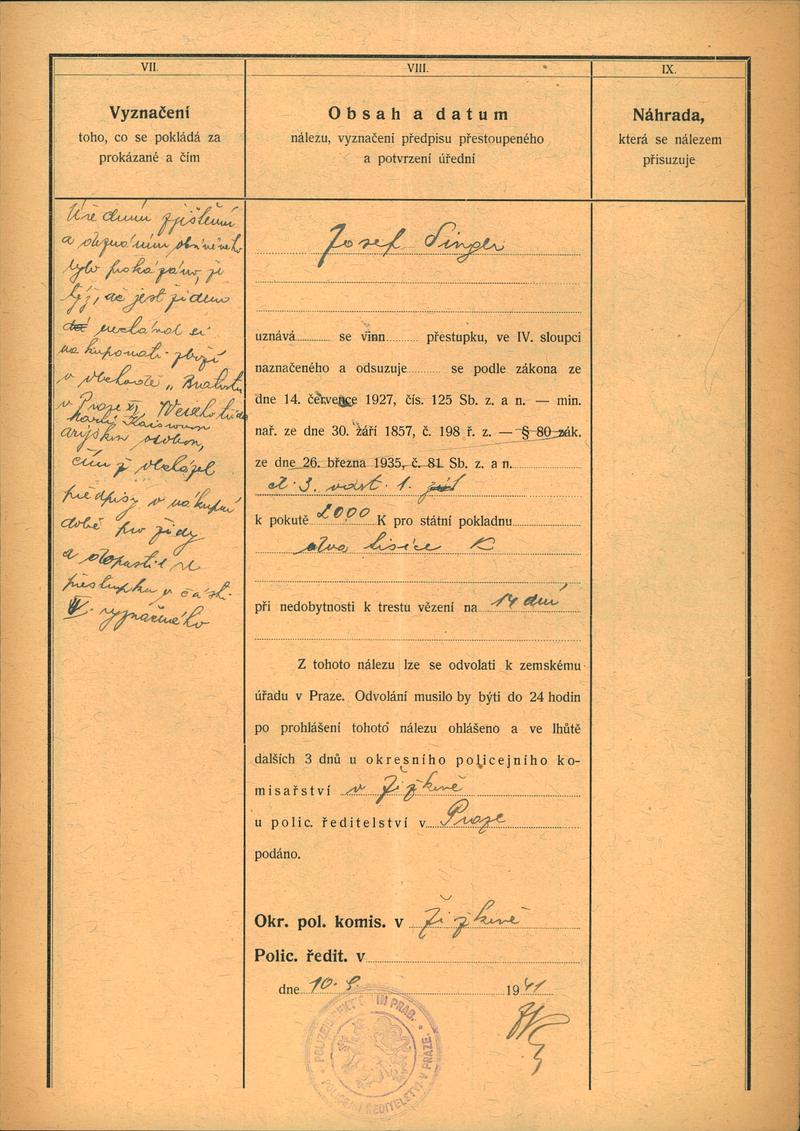 VII.
Vyznačení
toho, co se pokládá za
prokázané a čím
Úředním zjištění
a doznáním obviněného
bylo prokázáno, že
týž, ač jest židem
nechával si
nakupovati zboží
v obchodě „
v Praze XI,
árijskou osobou,
čímž obcházel
předpisy o nákupní
době pro židy
a dopustil se
přestupku v části
IV. vyznačeného
VIII.
Obsah a datum
nálezu, vyznačení předpisu přestoupeného
a potvrzení úřední
Josef Singer
uznává se vinn přestupku, ve IV. sloupci
naznačeného a odsuzuje se podle zákona ze
dne 14. července 1927, čís. 125 Sb. z. a n. — min.
nař. ze dne 30. září 1857, č. 198 ř. z. — § 80 zák.
ze dne 26. března 1935, č. 81 Sb. z. a n.
čl. 3. odst. 1.
k pokutě 2000 K pro státní pokladnu
dva tisíce K
při nedobytnosti k trestu vězení na 14 dní
Z tohoto nálezu lze se odvolati k zemskému
úřadu v Praze. Odvolání musilo by býti do 24 hodin
po prohlášení tohoto nálezu ohlášeno a ve lhůtě
dalších 3 dnů u okresního policejního ko-
misařství v Žižkově
u polic. ředitelství v Praze
podáno.
Okr. pol. komis. v Žižkově
Polic. ředit. v
dne 10. 9. 1941
POLIZEIDIREKTION IN PRAG.
POLICEJNÍ ŘEDITELSTVÍ V PRAZE.
IX.
Náhrada,
která se nálezem
přisuzuje